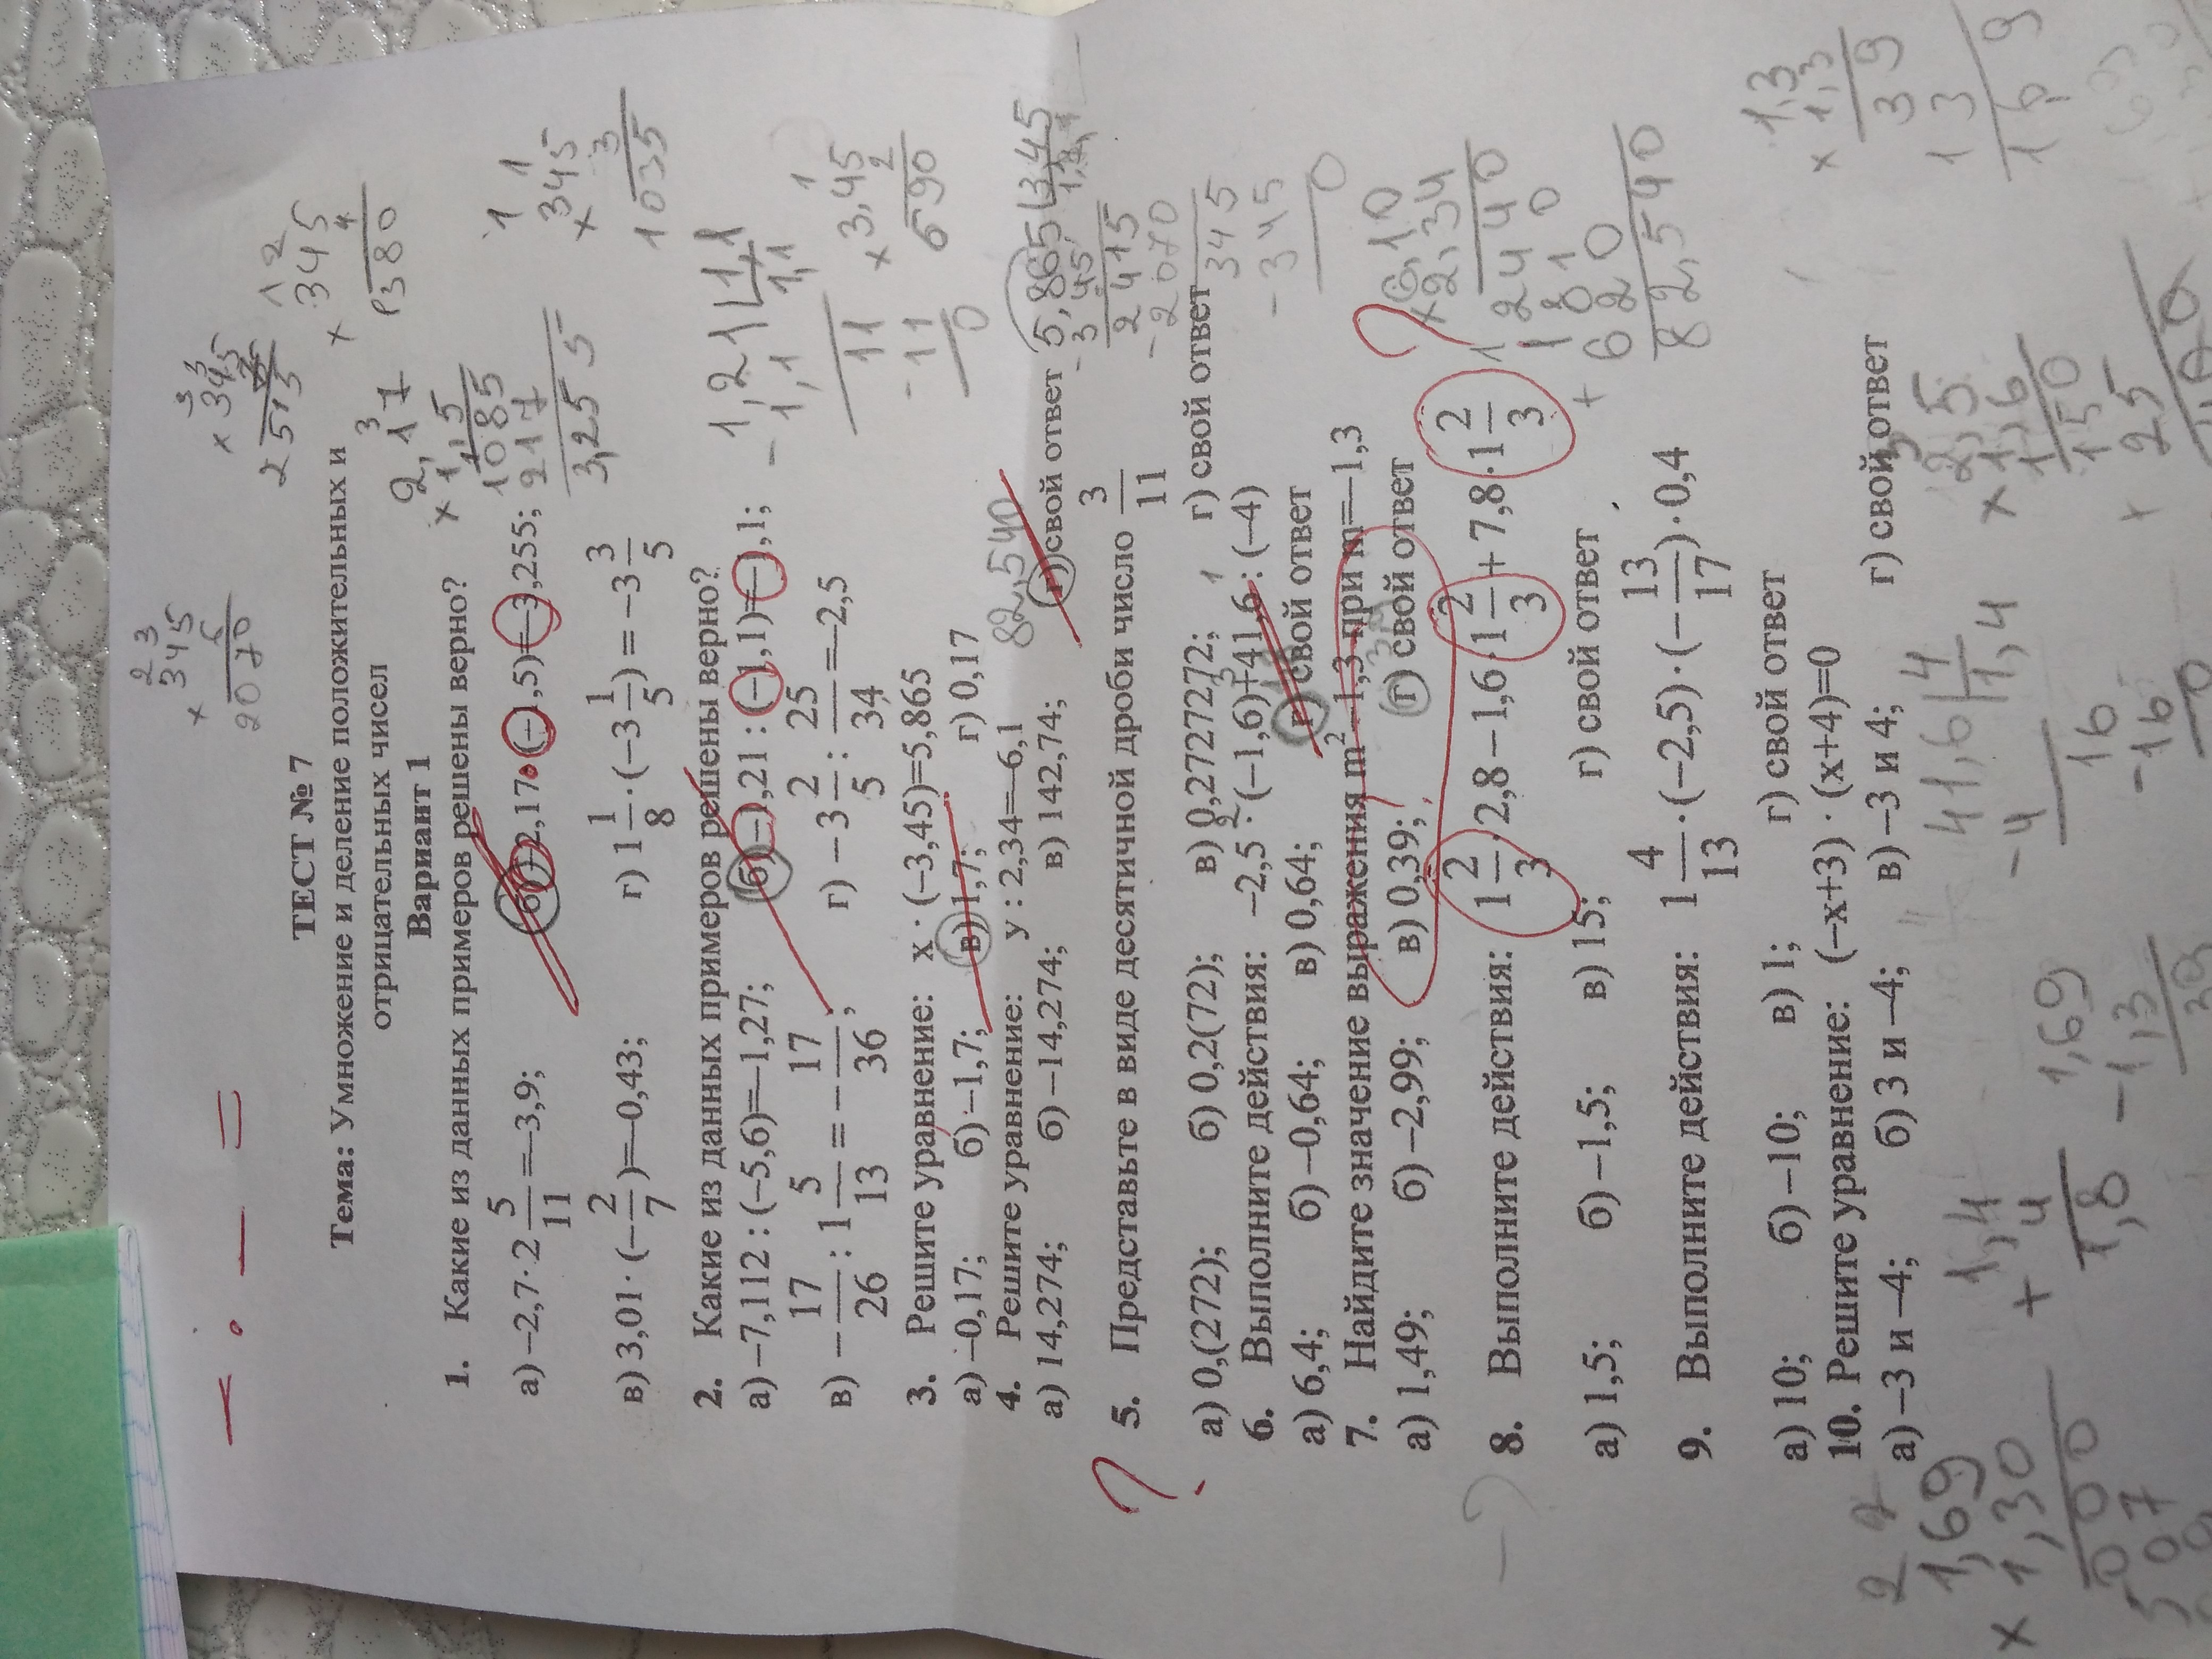 ТЕСТ № 7
Тема: Умножение и деление положительных и
отрицательных чисел
Вариант 1
1. Какие из данных примеров решены верно?
а) –2,7·2 5/11 =–3,9; б) –2,17·(–1,5)=–3,255;
в) 3,01·(–2/7)=–0,43; г) 1 1/8·(–3 1/5) = –3 3/5
2. Какие из данных примеров решены верно?
а) –7,112 : (–5,6)=–1,27; б) –1,21 : (–1,1)=–1,1;
в) –17/26 : 1 5/13 = –17/36; г) –3 2/5 : 25/34 =–2,5
3. Решите уравнение: х · (–3,45)=5,865
а) –0,17; б) –1,7; в) 1,7; г) 0,17
4. Решите уравнение: у : 2,34=–6,1
а) 14,274; б) –14,274; в) 142,74; г) свой ответ
5. Представьте в виде десятичной дроби число 3/11
а) 0,(272); б) 0,2(72); в) 0,2727272; г) свой ответ
6. Выполните действия: –2,5 : (–1,6)+41,6 : (–4)
а) 6,4; б) –0,64; в) 0,64; г) свой ответ
7. Найдите значение выражения m²–1,3 при m=–1,3
а) 1,49; б) –2,99; в) 0,39; г) свой ответ
8. Выполните действия: 1 2/3·2,8 – 1,6·1 2/3 + 7,8·1 2/3
а) 1,5; б) –1,5; в) 15; г) свой ответ
9. Выполните действия: 1 4/13·(–2,5)·(–13/17)·0,4
а) 10; б) –10; в) 1; г) свой ответ
10. Решите уравнение: (–х+3) · (х+4)=0
а) –3 и –4; б) 3 и –4; в) –3 и 4; г) свой ответ
× 345
6
2070
× 345
4
1380
× 2,17
1,5
1085
217
3,255
× 345
3
1035
- 1,21 | 1,1
1,1 1,1
11
-11
0
× 3,45
2
690
82,540
5,865 | 3,45
3 45
2 415
- 2070
345
- 345
0
× 6,10
2,34
2440
82,540
× 1,3
1,3
39
13
1,69
× 2,5
1,6
150
25
41,6 | 4
-4 1,4
16
-16
0
1,69
- 1,3
39
1,4
+ 4
1,8
× 1,69
1,30
000
507